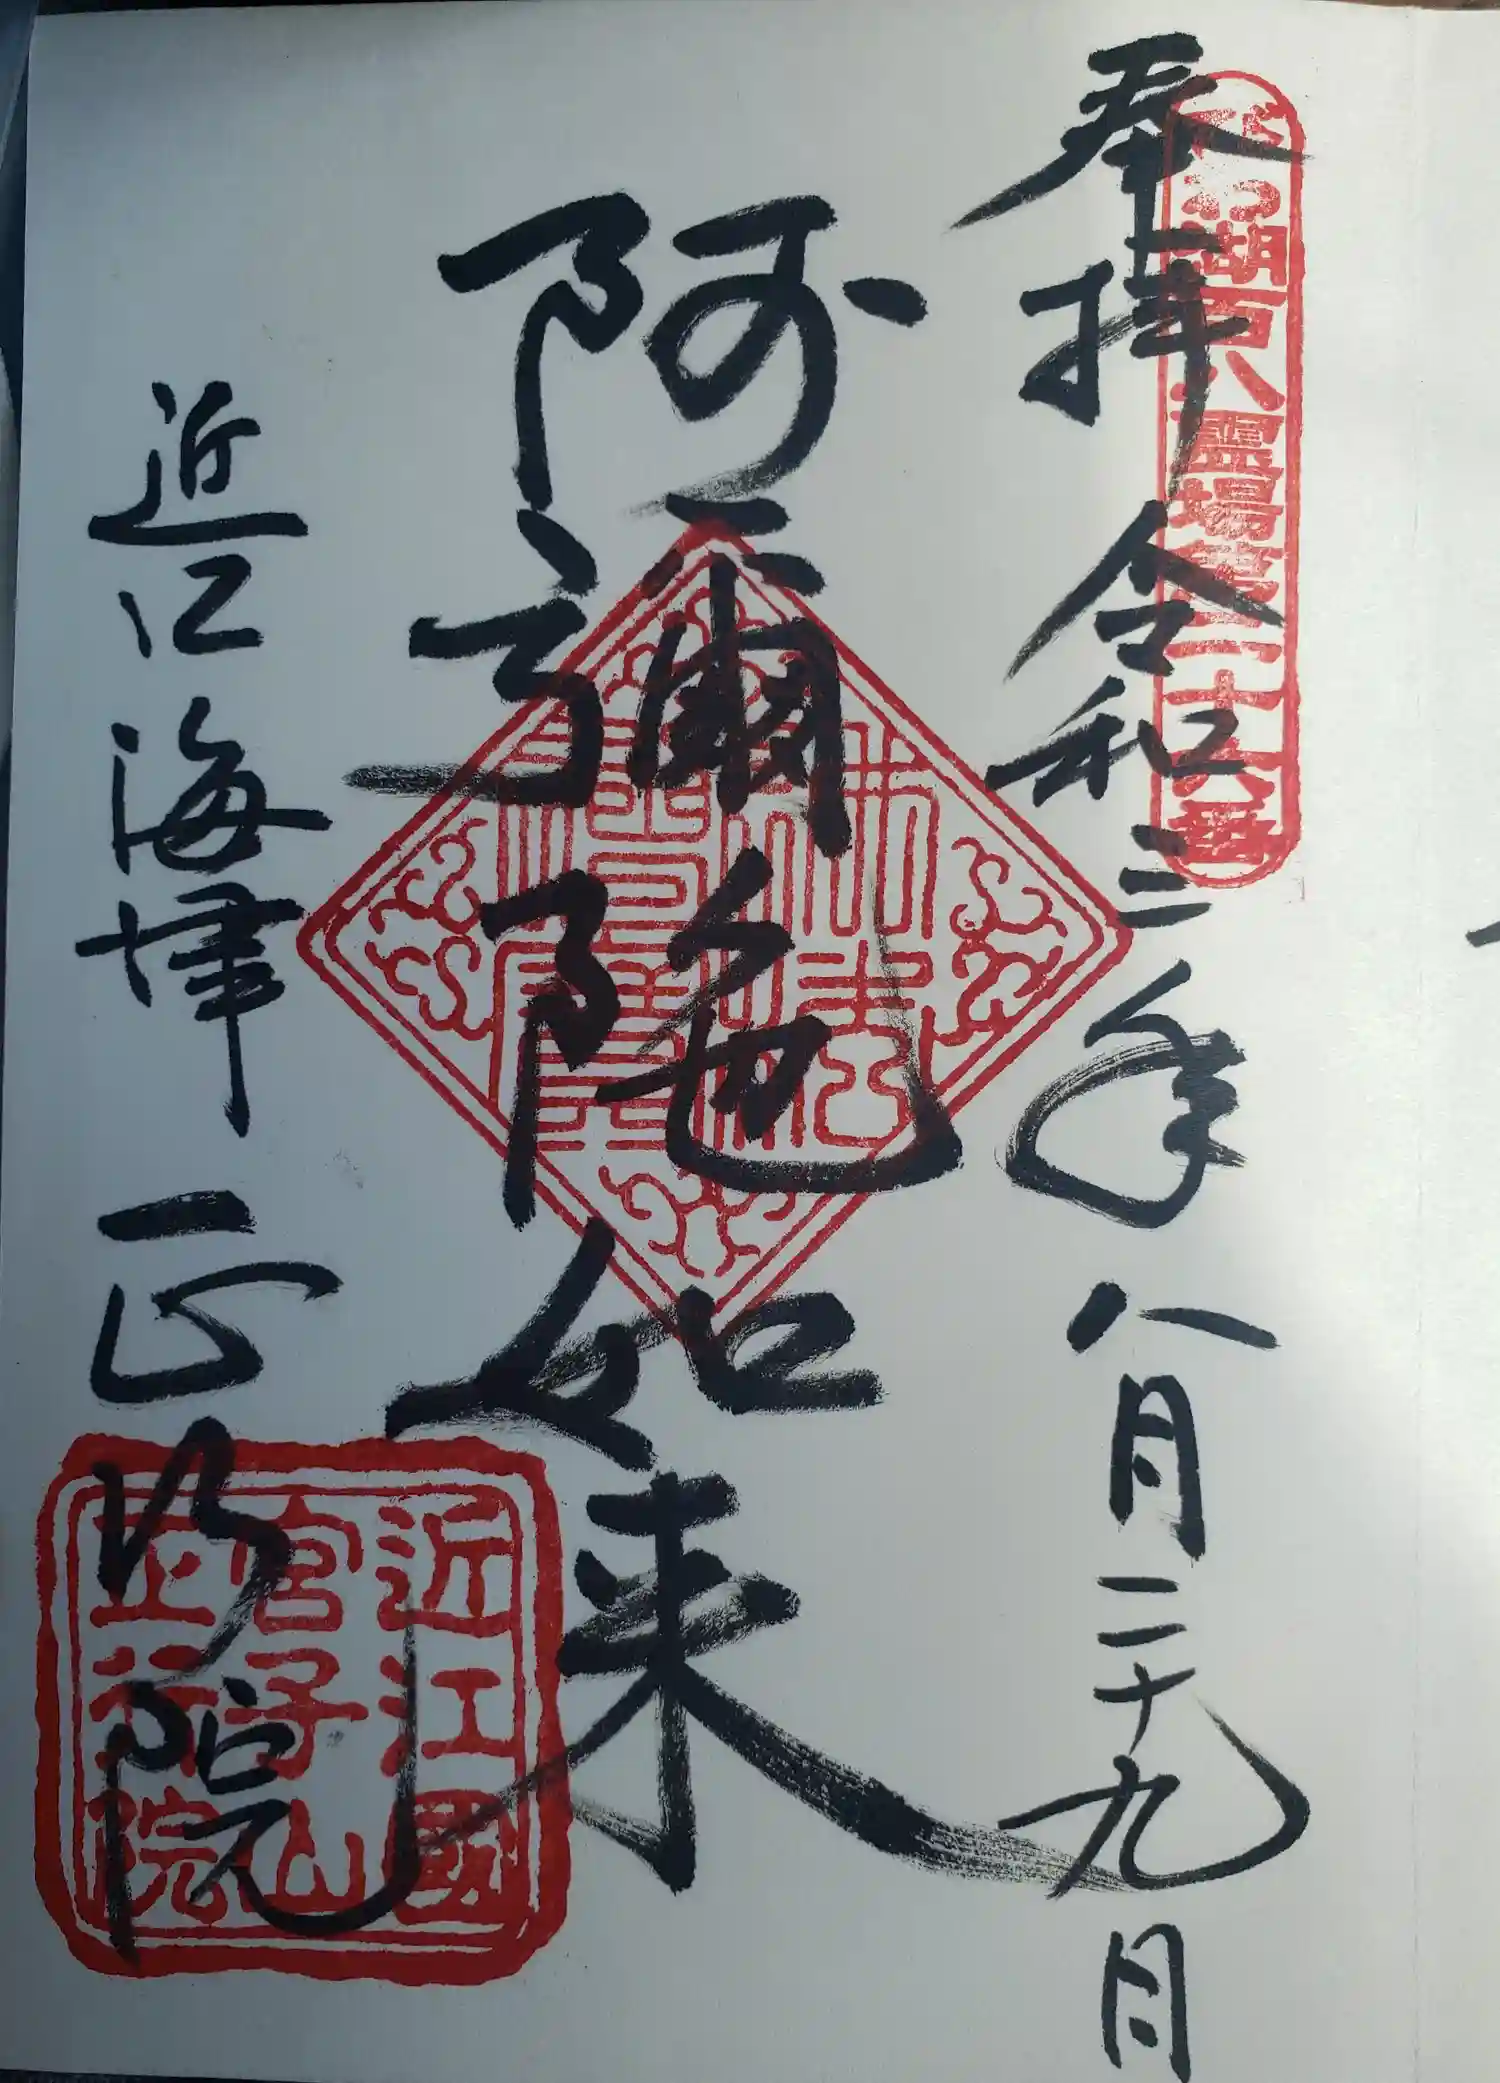 奉拝 令和三年八月二十九日
びわ湖百八霊場第二十六番
阿彌陀如来
近江海津 正行院
近江國
宮子山
正行院